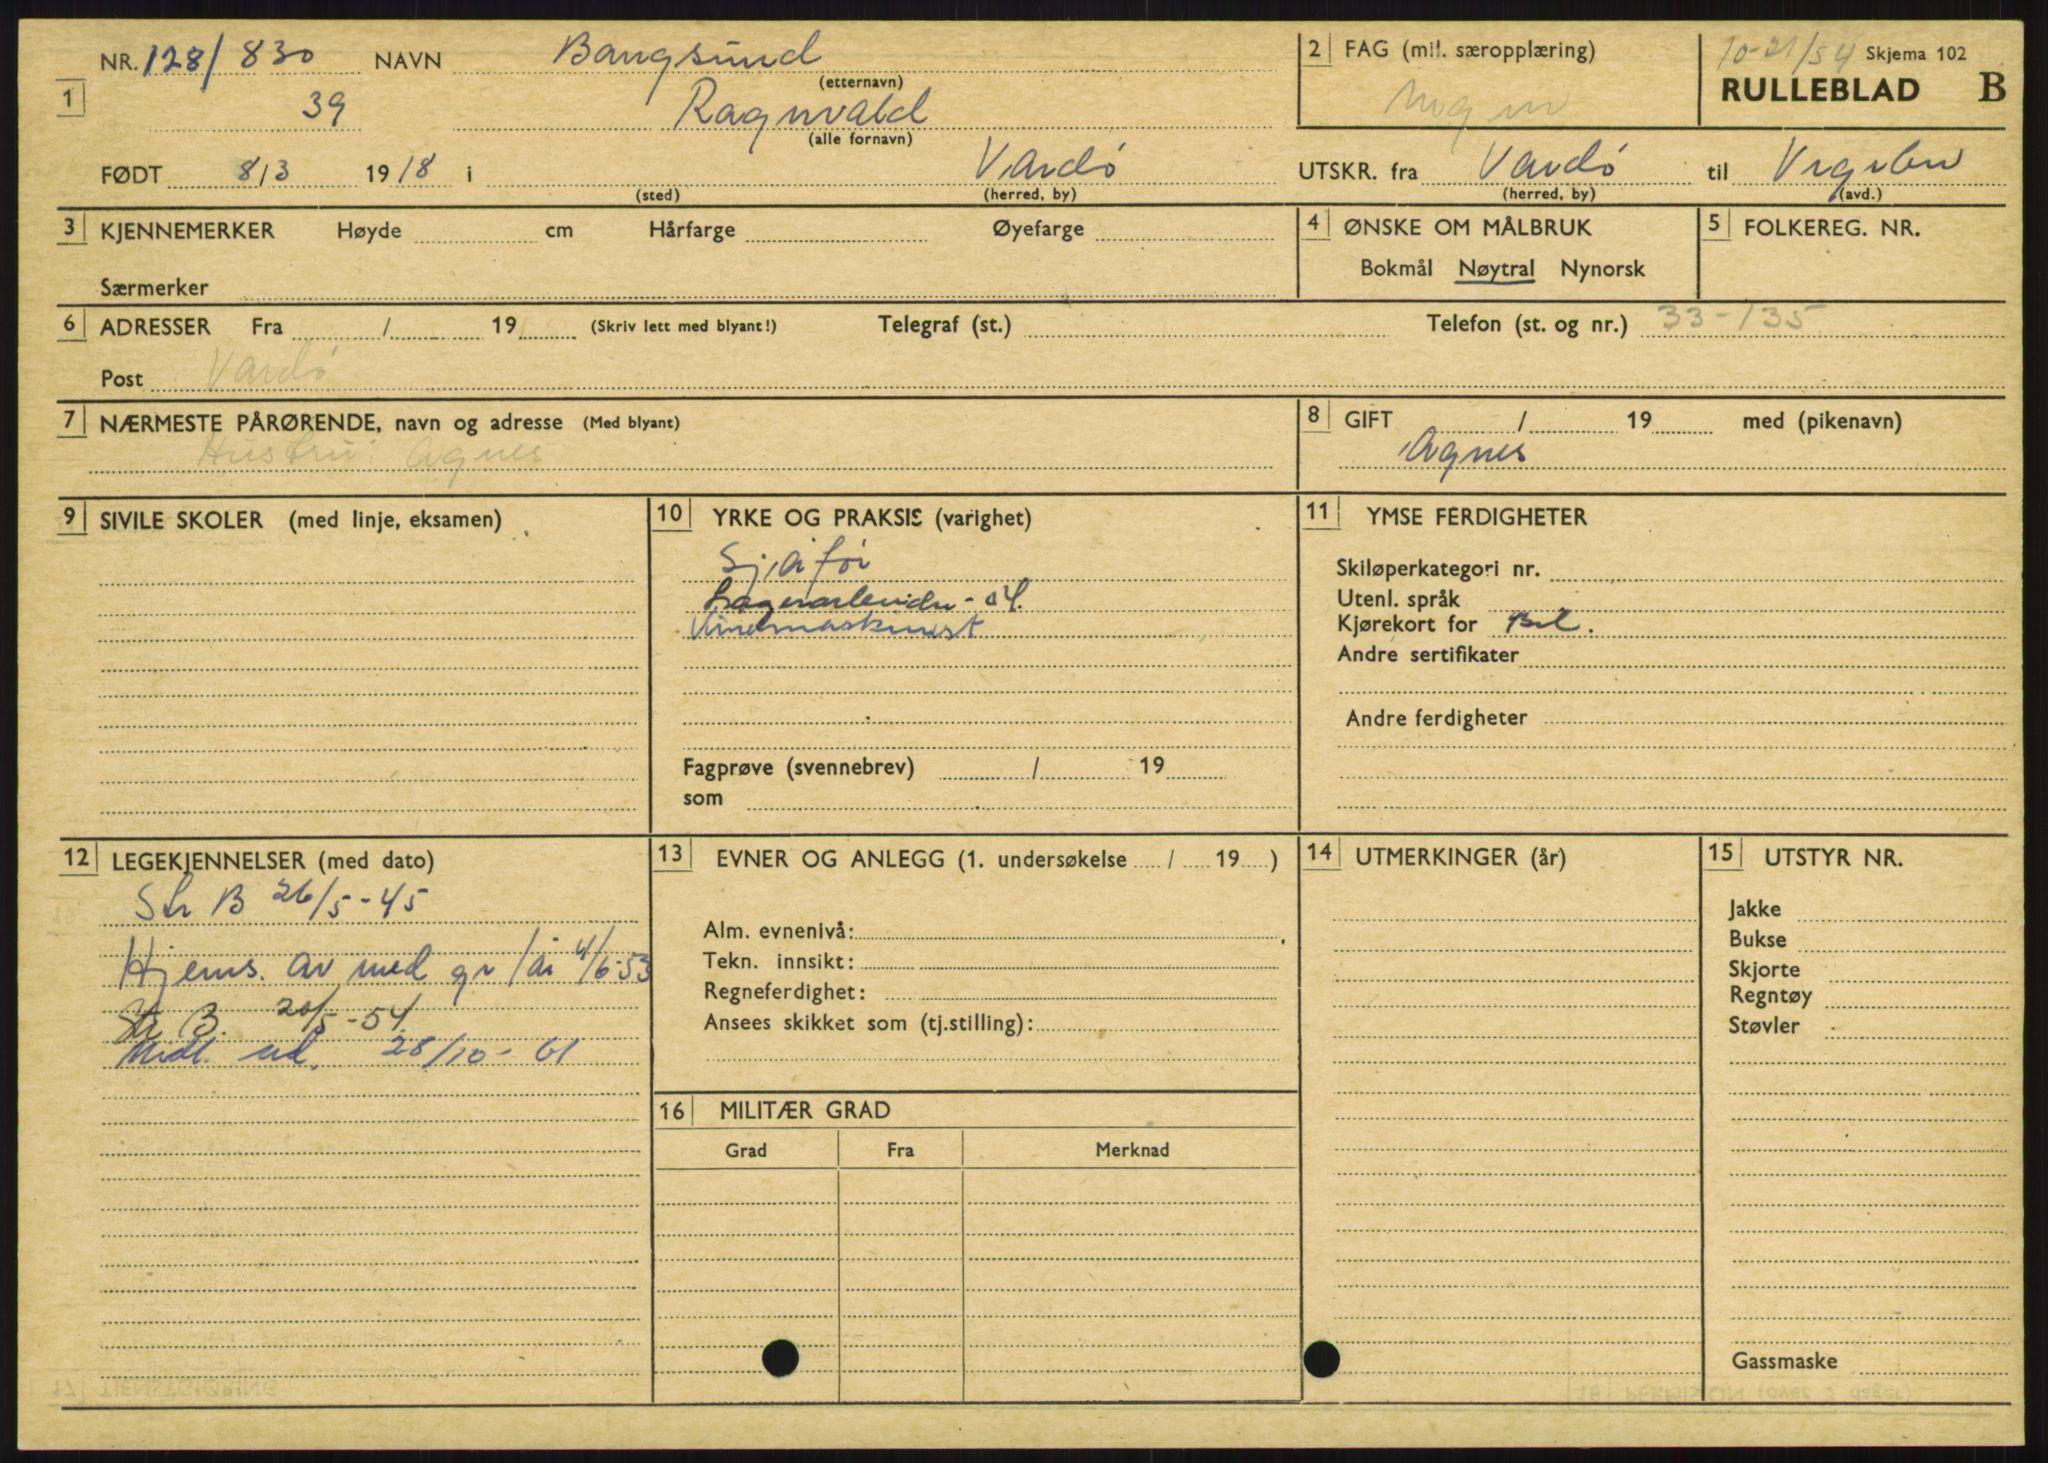 NR. 128/830 NAVN Bangsund
(etternavn)
1 39 Ragnvald
(alle fornavn)
FØDT 8/3 1918 i Vardø
(sted) (herred, by)
2 FAG (mil. særopplæring)
10-21/54 Skjema 102
RULLEBLAD B
UTSKR. fra Vardø til
(herred, by) (avd.)
3 KJENNEMERKER Høyde cm Hårfarge Øyefarge
Særmerker
4 ØNSKE OM MÅLBRUK
Bokmål Nøytral Nynorsk
5 FOLKEREG. NR.
6 ADRESSER Fra / 19 (Skriv lett med blyant!) Telegraf (st.) Telefon (st. og nr.) 33-135
Post Vardø
7 NÆRMESTE PÅRØRENDE, navn og adresse (Med blyant)
Hustru: Agnes
8 GIFT / 19 med (pikenavn)
Agnes
9 SIVILE SKOLER (med linje, eksamen)
10 YRKE OG PRAKSIS (varighet)
Sjåfør
Lagerarbeider - 04.
Vinsjmaskinist
Fagprøve (svennebrev) / 19
som
11 YMSE FERDIGHETER
Skiløperkategori nr.
Utenl. språk
Kjørekort for Bil.
Andre sertifikater
Andre ferdigheter
12 LEGEKJENNELSER (med dato)
Str B 26/5-45
Hjems. av med gr 1 år 4/6-53
Str B. 20/5-54
Midl. ud. 28/10-61
13 EVNER OG ANLEGG (1. undersøkelse / 19 )
Alm. evnenivå:
Tekn. innsikt:
Regneferdighet:
Ansees skikket som (tj.stilling):
14 UTMERKINGER (år)
15 UTSTYR NR.
Jakke
Bukse
Skjorte
Regntøy
Støvler
Gassmaske
16 MILITÆR GRAD
Grad Fra Merknad